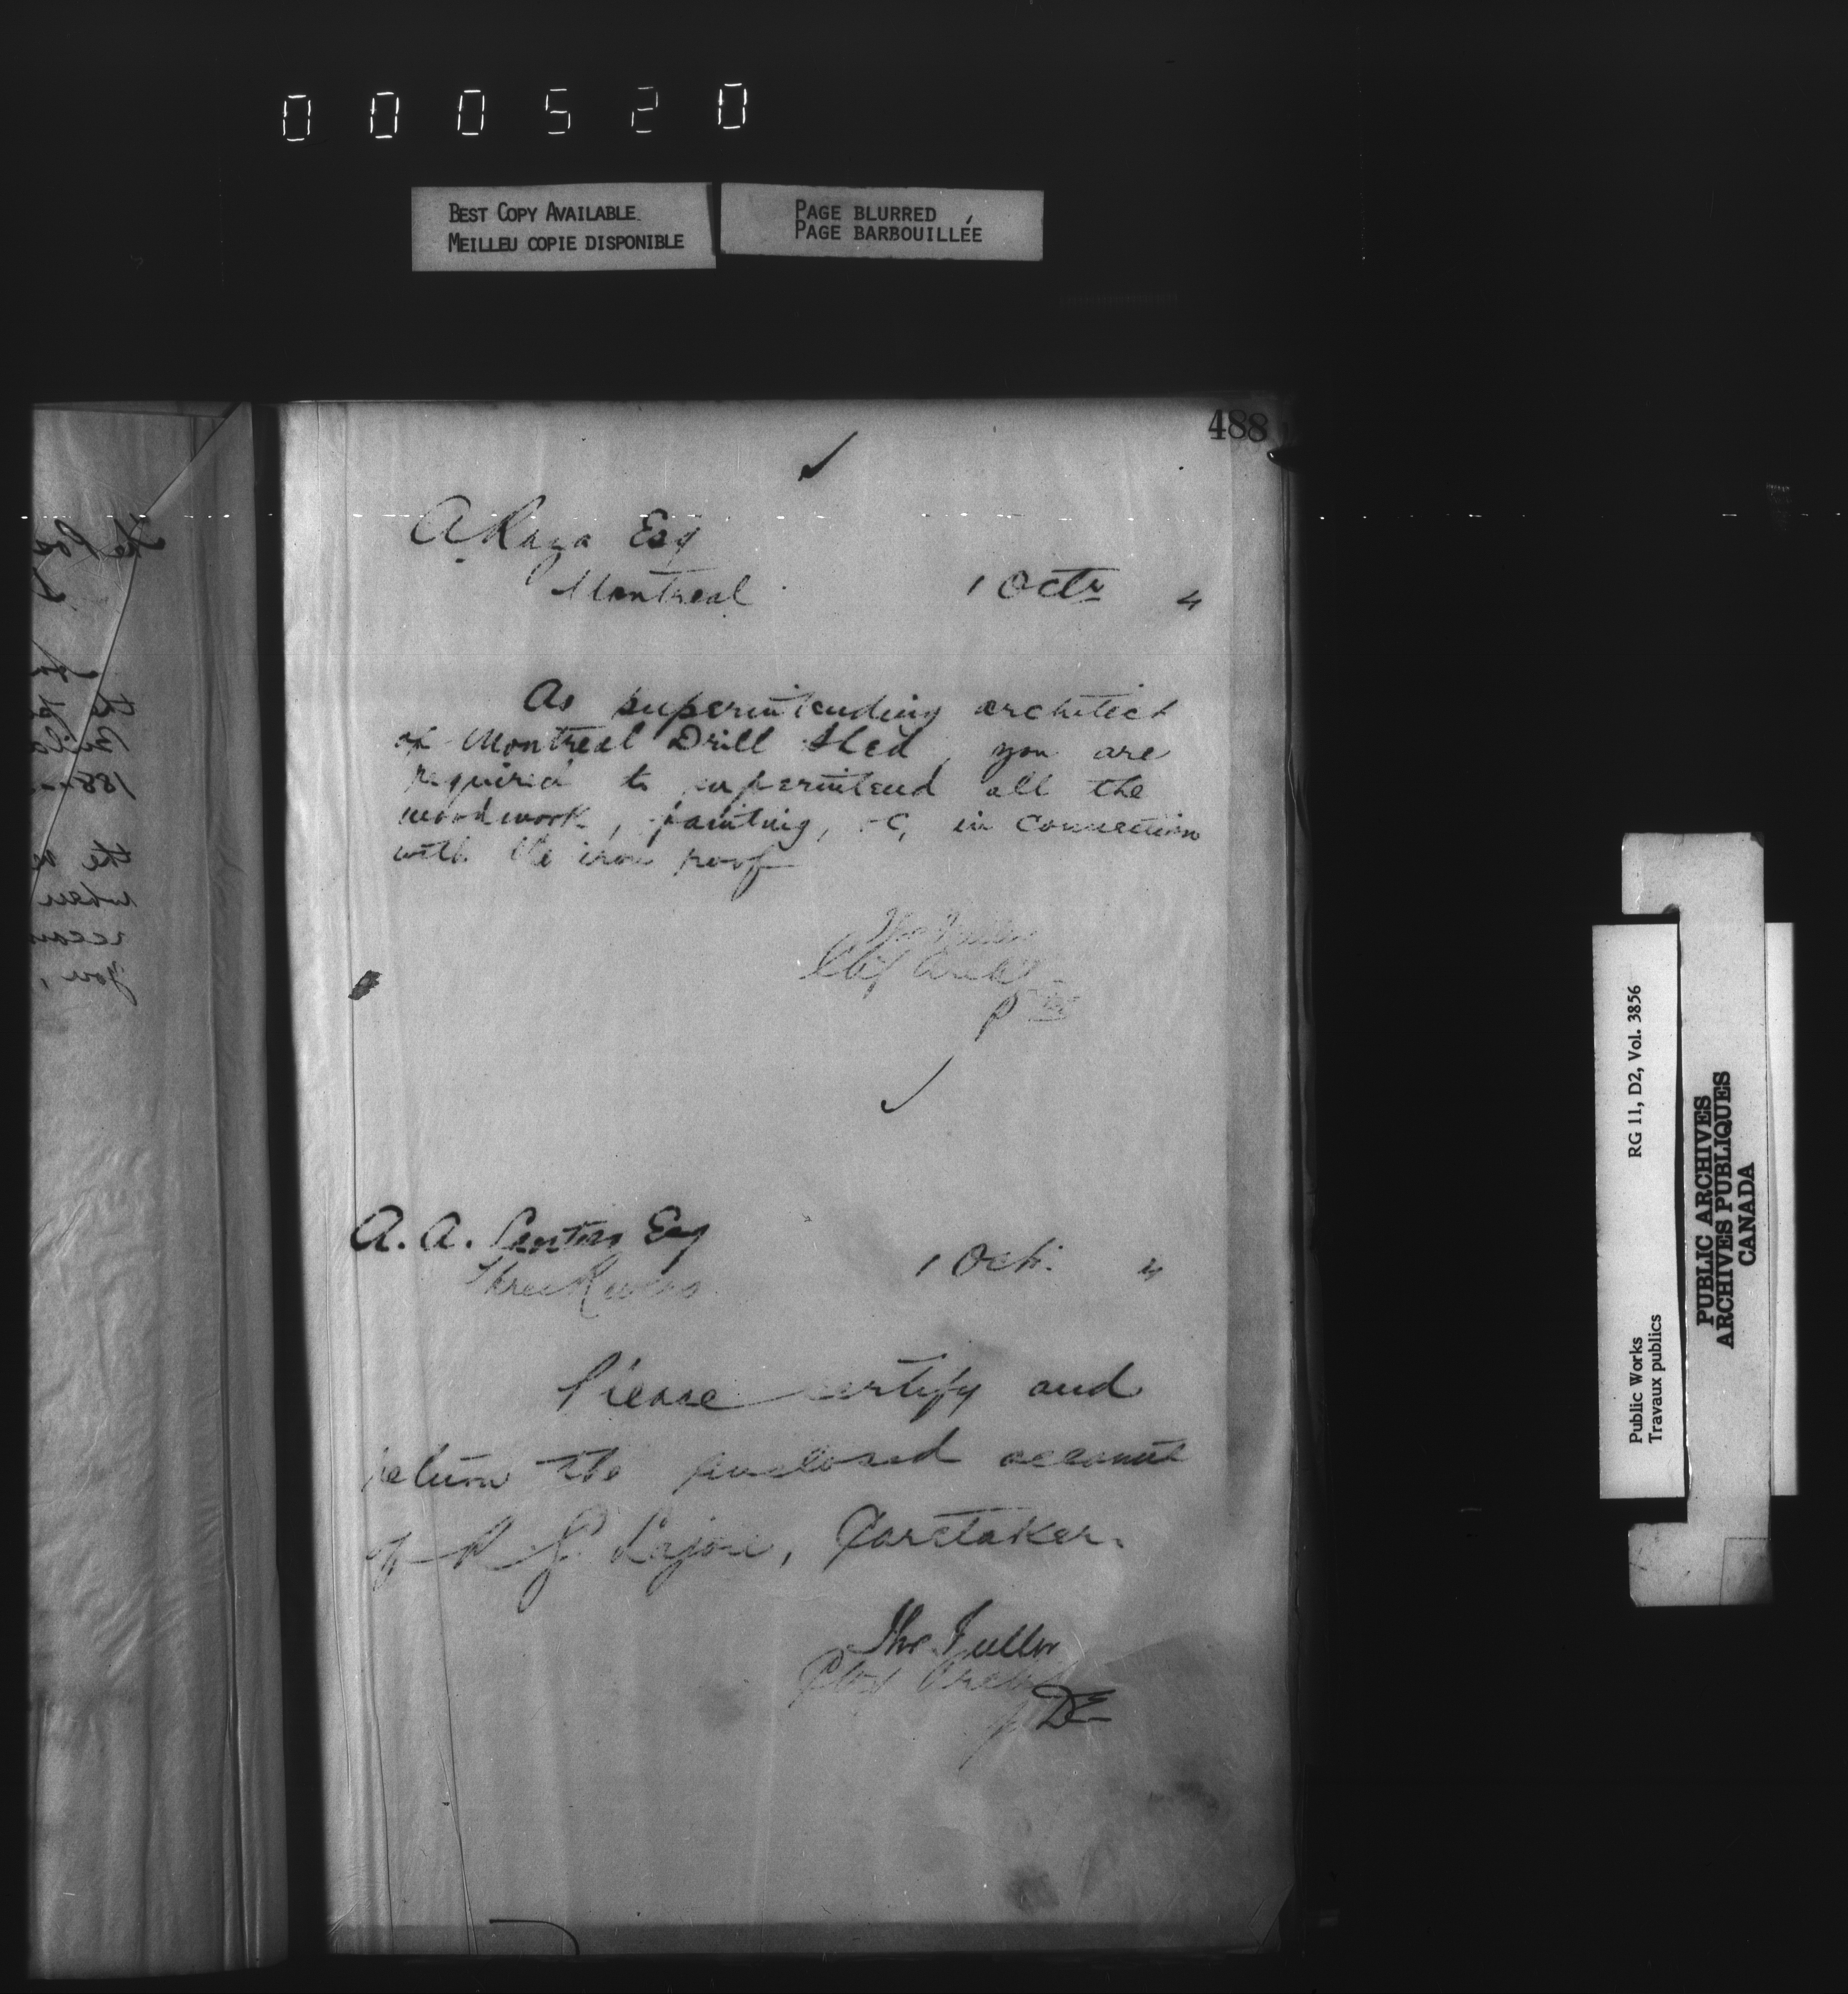 000520
BEST COPY AVAILABLE
MEILLEU COPIE DISPONIBLE
PAGE BLURRED
PAGE BARBOUILLÉE
488
A Raza Esq
Montreal
1 Octr 4
As superintending architect
of Montreal Drill Shed, you are
required to superintend all the
woodwork, painting, &c, in connection
with the iron roof
Thos Fuller
Chf Archt
p
A. A. Esq
Three Rivers
1 Octr. 4
Please certify and
return the enclosed account
of Lajoie, Caretaker.
Thos. Fuller
Chf Archt
p DE
RG 11, D2, Vol. 3856
Public Works
Travaux publics
PUBLIC ARCHIVES
ARCHIVES PUBLIQUES
CANADA